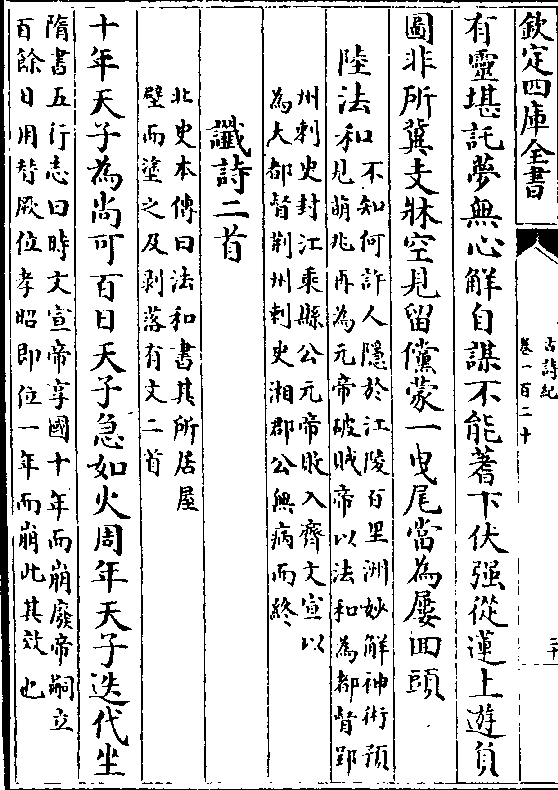 欽定四庫全書
古詩紀
卷一百二十
二十
有靈堪託夢無心解自謀不能蓍下伏强從蓮上遊負
圖非所冀支牀空見留儻蒙一曳尾當為屢回頭
陸法和
不知何許人隱於江陵百里洲妙解神術預
見萌兆再為元帝破賊帝以法和為都督郢
州刺史封江乘縣公元帝敗入齊文宣以
為大都督荆州刺史湘郡公無病而終
讖詩二首
北史本傳曰法和書其所居屋
壁而塗之及剥落有文二首
十年天子為尚可百日天子急如火周年天子迭代坐
隋書五行志曰時文宣帝享國十年而崩廢帝嗣立
百餘日用替厥位孝昭即位一年而崩此其效也